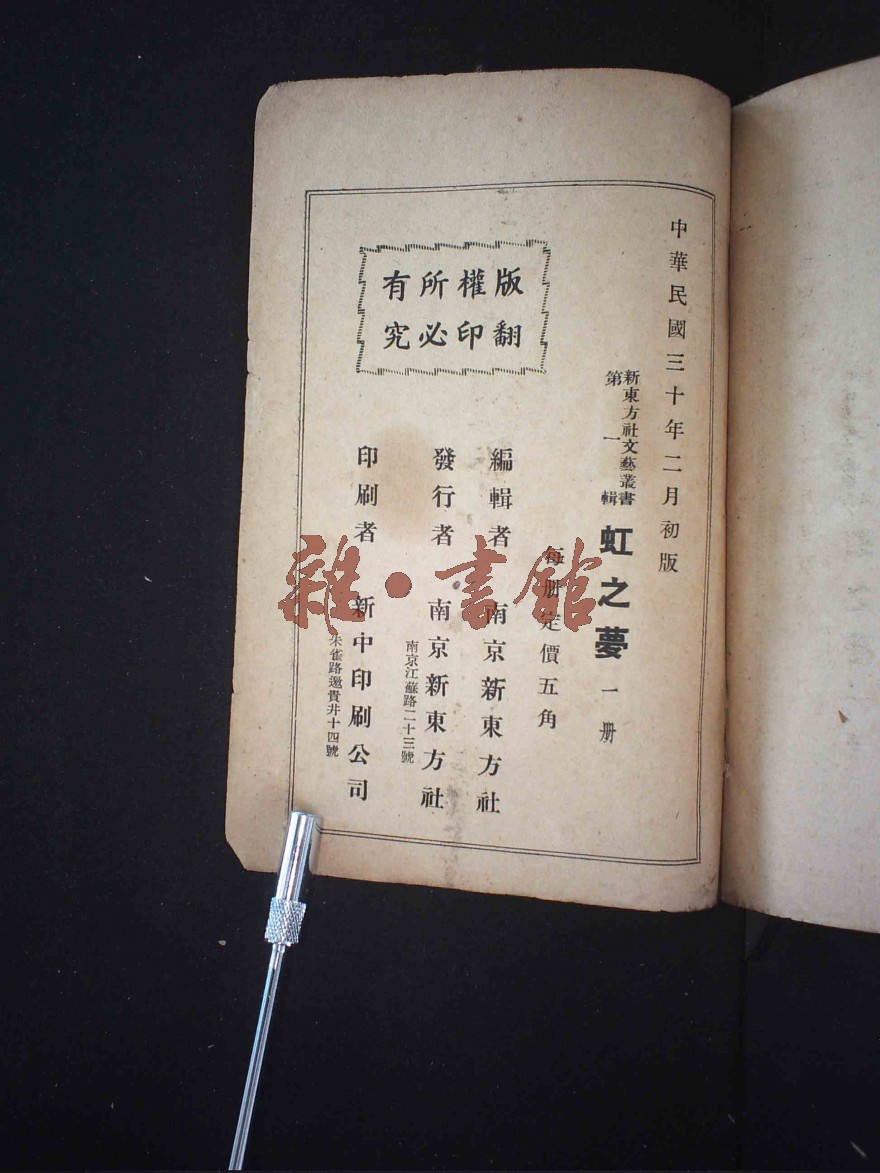 中華民國三十年二月初版
新東方社文藝叢書
第一輯
虹之夢 一册
每册定價五角
編輯者 南京新東方社
發行者 南京新東方社
南京江蘇路二十三號
印刷者 新中印刷公司
朱雀路邀貴井十四號
版權所有
翻印必究
雜·書館